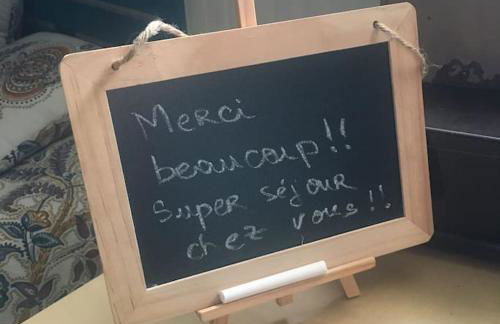 Merci
beaucoup!!
Super séjour
chez vous!!